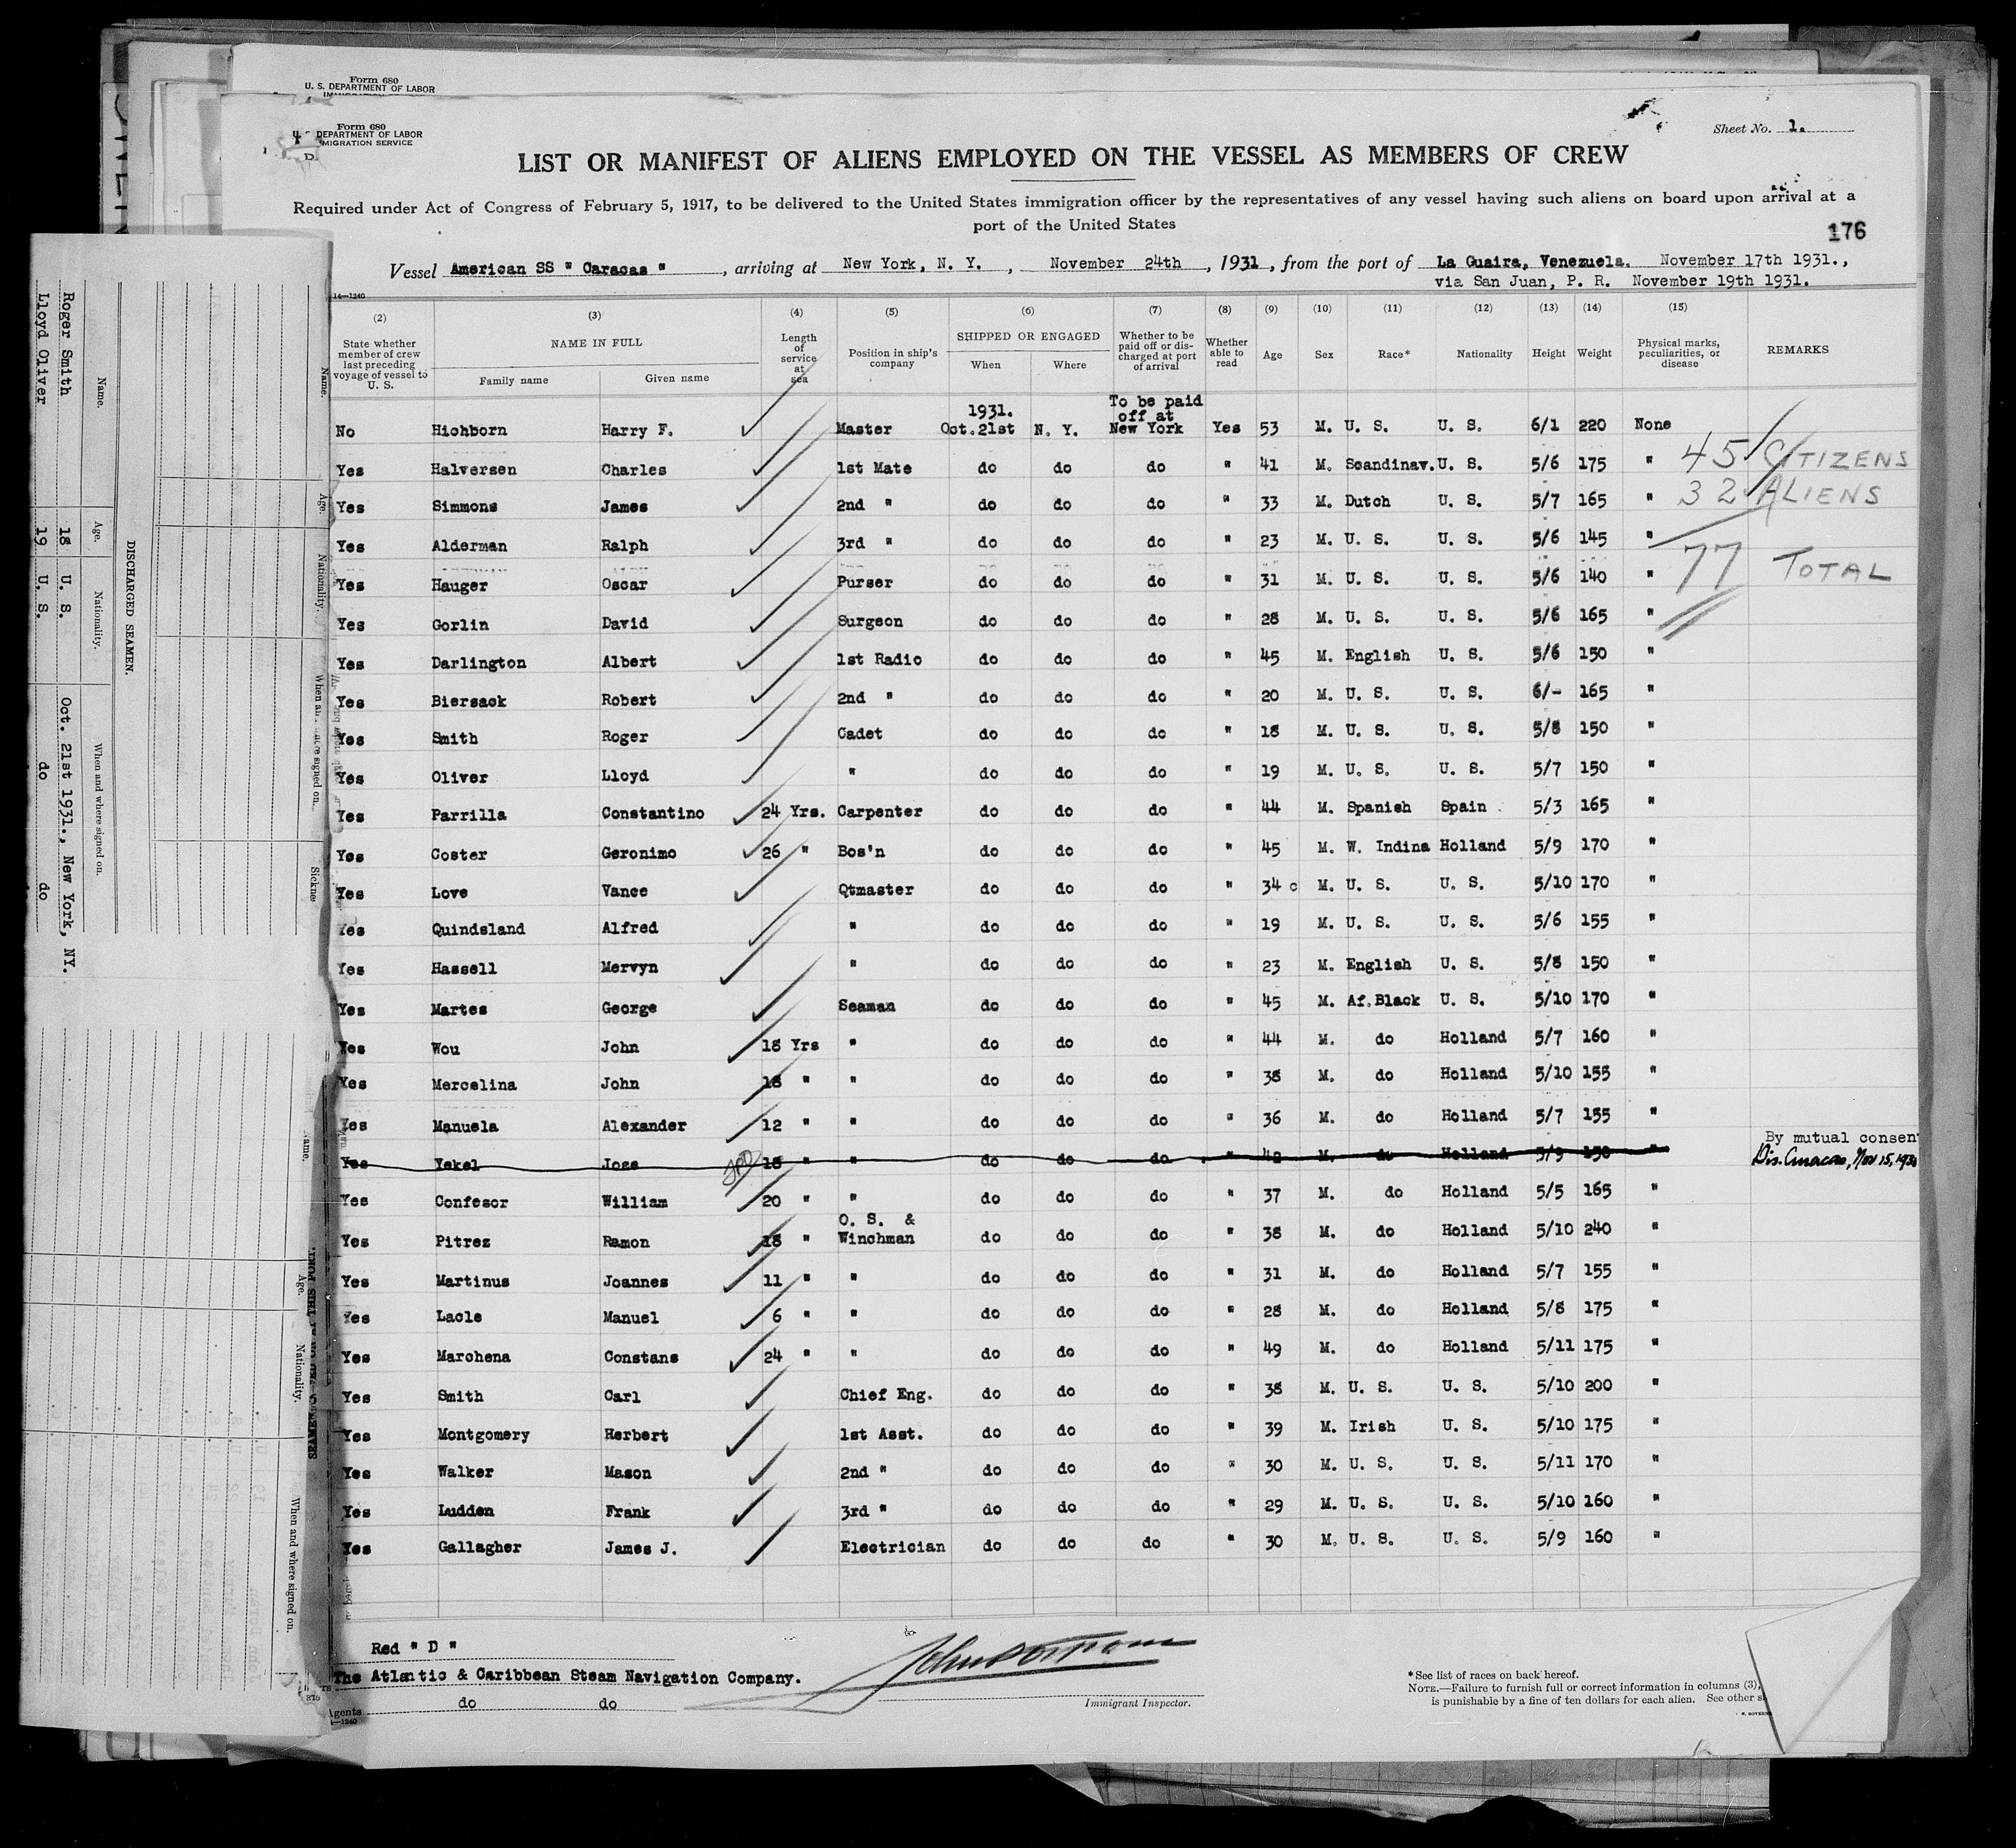 Form 680
U. S. DEPARTMENT OF LABOR
Form 680
DEPARTMENT OF LABOR
MIGRATION SERVICE
Sheet No. 1.
LIST OR MANIFEST OF ALIENS EMPLOYED ON THE VESSEL AS MEMBERS OF CREW
Required under Act of Congress of February 5, 1917, to be delivered to the United States immigration officer by the representatives of any vessel having such aliens on board upon arrival at a
port of the United States
176
Vessel American SS " Caracas " , arriving at New York, N. Y. , November 24th , 1931 , from the port of La Guaira, Venezuela. November 17th 1931.,
via San Juan, P. R. November 19th 1931.
14—1240
(2) (3) (4) (5) (6) (7) (8) (9) (10) (11) (12) (13) (14) (15)
State whether member of crew last preceding voyage of vessel to U. S.
NAME IN FULL
Family name Given name
Length of service at sea
Position in ship's company
SHIPPED OR ENGAGED
When Where
Whether to be paid off or discharged at port of arrival
Whether able to read
Age Sex Race* Nationality Height Weight
Physical marks, peculiarities, or disease
REMARKS
1931. To be paid off at
No Hichborn Harry F. Master Oct.21st N. Y. New York Yes 53 M. U. S. U. S. 6/1 220 None
Yes Halversen Charles 1st Mate do do do " 41 M. Scandinav. U. S. 5/6 175 " 45 CITIZENS
Yes Simmons James 2nd " do do do " 33 M. Dutch U. S. 5/7 165 " 32 ALIENS
Yes Alderman Ralph 3rd " do do do " 23 M. U. S. U. S. 5/6 145 "
Yes Hauger Oscar Purser do do do " 31 M. U. S. U. S. 5/6 140 " 77 TOTAL
Yes Gorlin David Surgeon do do do " 28 M. U. S. U. S. 5/6 165 "
Yes Darlington Albert 1st Radio do do do " 45 M. English U. S. 5/6 150 "
Yes Biersack Robert 2nd " do do do " 20 M. U. S. U. S. 6/- 165 "
Yes Smith Roger Cadet do do do " 18 M. U. S. U. S. 5/8 150 "
Yes Oliver Lloyd " do do do " 19 M. U. S. U. S. 5/7 150 "
Yes Parrilla Constantino 24 Yrs. Carpenter do do do " 44 M. Spanish Spain 5/3 165 "
Yes Coster Geronimo 26 " Bos'n do do do " 45 M. W. Indina Holland 5/9 170 "
Yes Love Vance Qtmaster do do do " 34 c M. U. S. U. S. 5/10 170 "
Yes Quindsland Alfred " do do do " 19 M. U. S. U. S. 5/6 155 "
Yes Hassell Mervyn " do do do " 23 M. English U. S. 5/8 150 "
Yes Martes George Seaman do do do " 45 M. Af.Black U. S. 5/10 170 "
Yes Wou John 18 Yrs " do do do " 44 M. do Holland 5/7 160 "
Yes Mercelina John 18 " " do do do " 38 M. do Holland 5/10 155 "
Yes Manuela Alexander 12 " " do do do " 36 M. do Holland 5/7 155 "
By mutual consen
Yes Yekel Jose 18 " " do do do " 42 M. do Holland 5/9 150 " Dis. Curacao, Nov 15, 193
Yes Confesor William 20 " " do do do " 37 M. do Holland 5/5 165 "
O. S. &
Yes Pitrez Ramon 18 " Winchman do do do " 38 M. do Holland 5/10 240 "
Yes Martinus Joannes 11 " " do do do " 31 M. do Holland 5/7 155 "
Yes Lacle Manuel 6 " " do do do " 28 M. do Holland 5/8 175 "
Yes Marchena Constans 24 " " do do do " 49 M. do Holland 5/11 175 "
Yes Smith Carl Chief Eng. do do do " 38 M. U. S. U. S. 5/10 200 "
Yes Montgomery Herbert 1st Asst. do do do " 39 M. Irish U. S. 5/10 175 "
Yes Walker Mason 2nd " do do do " 30 M. U. S. U. S. 5/11 170 "
Yes Ludden Frank 3rd " do do do " 29 M. U. S. U. S. 5/10 160 "
Yes Gallagher James J. Electrician do do do " 30 M. U. S. U. S. 5/9 160 "
Red " D "
The Atlantic & Caribbean Steam Navigation Company.
Agents do do
14—1240
Immigrant Inspector.
*See list of races on back hereof.
NOTE.—Failure to furnish full or correct information in columns (3),
is punishable by a fine of ten dollars for each alien. See other s
DISCHARGED SEAMEN.
Name. Age. Nationality. When and where signed on.
Roger Smith 18 U. S. Oct. 21st 1931., New York, NY.
Lloyd Oliver 19 U. S. do do
Name. Age. Nationality. When and where signed on. Sickne
Name. Age. Nationality. When and where signed on.